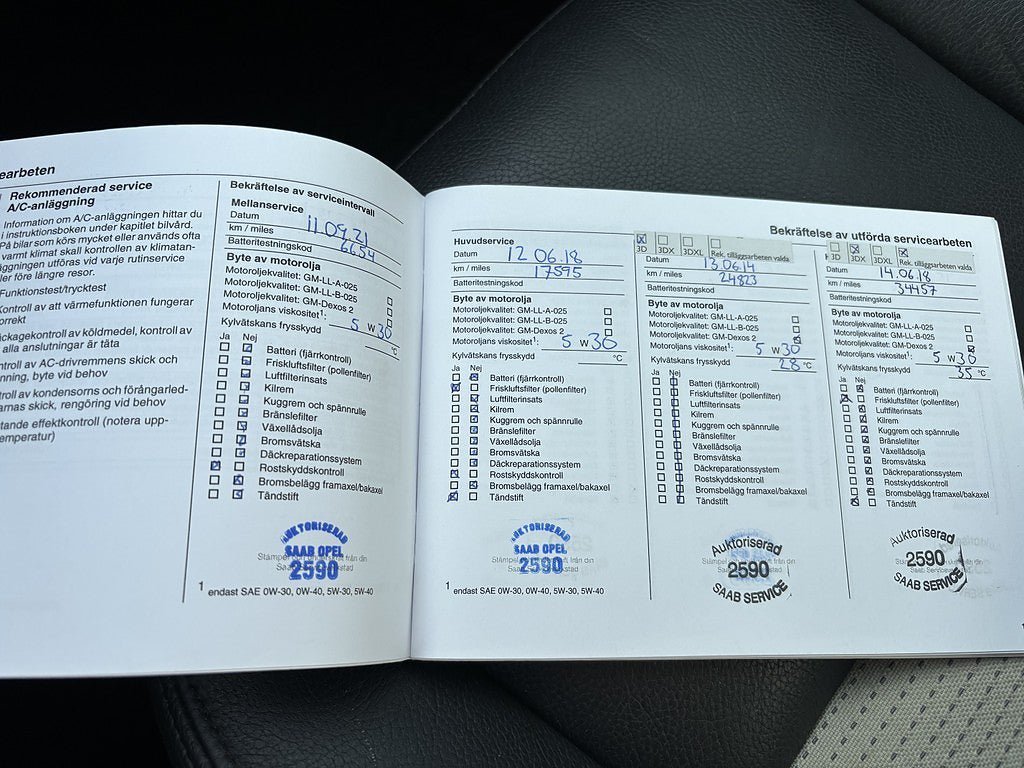 earbeten
Rekommenderad service
A/C-anläggning
Information om A/C-anläggningen hittar du
i instruktionsboken under kapitlet bilvård.
På bilar som körs mycket eller används ofta
varmt klimat skall kontrollen av klimatan-
äggningen utföras vid varje rutinservice
ler före längre resor.
Funktionstest/trycktest
Kontrol av att värmefunktionen fungerar
orrekt
ckagekontroll av köldmedel, kontroll av
alla anslutningar är täta
ntroll av AC-drivremmens skick och
nning, byte vid behov
troll av kondensorns och förångarled-
arnas skick, rengöring vid behov
tande effektkontroll (notera upp-
emperatur)
Bekräftelse av serviceintervall
Mellanservice
Datum 11.09.21
km / miles 6654
Batteritestningskod
Byte av motorolja
Motoroljekvalitet: GM-LL-A-025
Motoroljekvalitet: GM-LL-B-025
Motoroljekvalitet: GM-Dexos 2
Motoroljans viskositet1: 5 W 30
Kylvätskans frysskydd °C
Ja Nej
Batteri (fjärrkontroll)
Friskluftsfilter (pollenfilter)
Luftfilterinsats
Kilrem
Kuggrem och spännrulle
Bränslefilter
Växellådsolja
Bromsvätska
Däckreparationssystem
Rostskyddskontroll
Bromsbelägg framaxel/bakaxel
Tändstift
AUKTORISERAD
SAAB OPEL
2590
1 endast SAE 0W-30, 0W-40, 5W-30, 5W-40
Bekräftelse av utförda servicearbeten
Huvudservice
Datum 12 06.18
km / miles 17595
Batteritestningskod
Byte av motorolja
Motoroljekvalitet: GM-LL-A-025
Motoroljekvalitet: GM-LL-B-025
Motoroljekvalitet: GM-Dexos 2
Motoroljans viskositet1: 5 W 30
Kylvätskans frysskydd °C
Ja Nej
Batteri (fjärrkontroll)
Friskluftsfilter (pollenfilter)
Luftfilterinsats
Kilrem
Kuggrem och spännrulle
Bränslefilter
Växellådsolja
Bromsvätska
Däckreparationssystem
Rostskyddskontroll
Bromsbelägg framaxel/bakaxel
Tändstift
AUKTORISERAD
SAAB OPEL
2590
1 endast SAE 0W-30, 0W-40, 5W-30, 5W-40
3D 3DX 3DXL Rek. tilläggsarbeten valda
Datum 13.06.14
km / miles 24823
Batteritestningskod
Byte av motorolja
Motoroljekvalitet: GM-LL-A-025
Motoroljekvalitet: GM-LL-B-025
Motoroljekvalitet: GM-Dexos 2
Motoroljans viskositet1: 5 W 30
Kylvätskans frysskydd 28 °C
Ja Nej
Batteri (fjärrkontroll)
Friskluftsfilter (pollenfilter)
Luftfilterinsats
Kilrem
Kuggrem och spännrulle
Bränslefilter
Växellådsolja
Bromsvätska
Däckreparationssystem
Rostskyddskontroll
Bromsbelägg framaxel/bakaxel
Tändstift
Auktoriserad
2590
SAAB SERVICE
3D 3DX 3DXL Rek. tilläggsarbeten valda
Datum 14.06.18
km / miles 34457
Batteritestningskod
Byte av motorolja
Motoroljekvalitet: GM-LL-A-025
Motoroljekvalitet: GM-LL-B-025
Motoroljekvalitet: GM-Dexos 2
Motoroljans viskositet1: 5 W 30
Kylvätskans frysskydd 35 °C
Ja Nej
Batteri (fjärrkontroll)
Friskluftsfilter (pollenfilter)
Luftfilterinsats
Kilrem
Kuggrem och spännrulle
Bränslefilter
Växellådsolja
Bromsvätska
Däckreparationssystem
Rostskyddskontroll
Bromsbelägg framaxel/bakaxel
Tändstift
Auktoriserad
2590
SAAB SERVICE